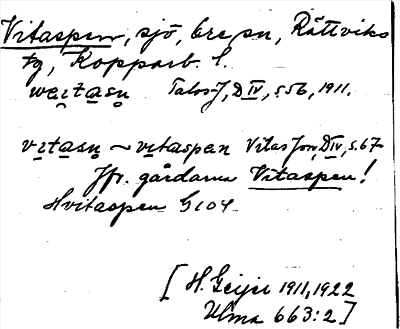 Vitaspen, sjö, Ore sn, Rättviks
tg, Kopparb. l.
weɪtasn̥ Talos-J, D IV, s. 56, 1911.
vɪtasn̥ ~ vɪtaspan Vitas Jon, D IV, s. 67
Jfr. gårdarna Vitaspen!
Hvitaspen G 104
[H. Geijer 1911, 1922
Ulma 663:2]